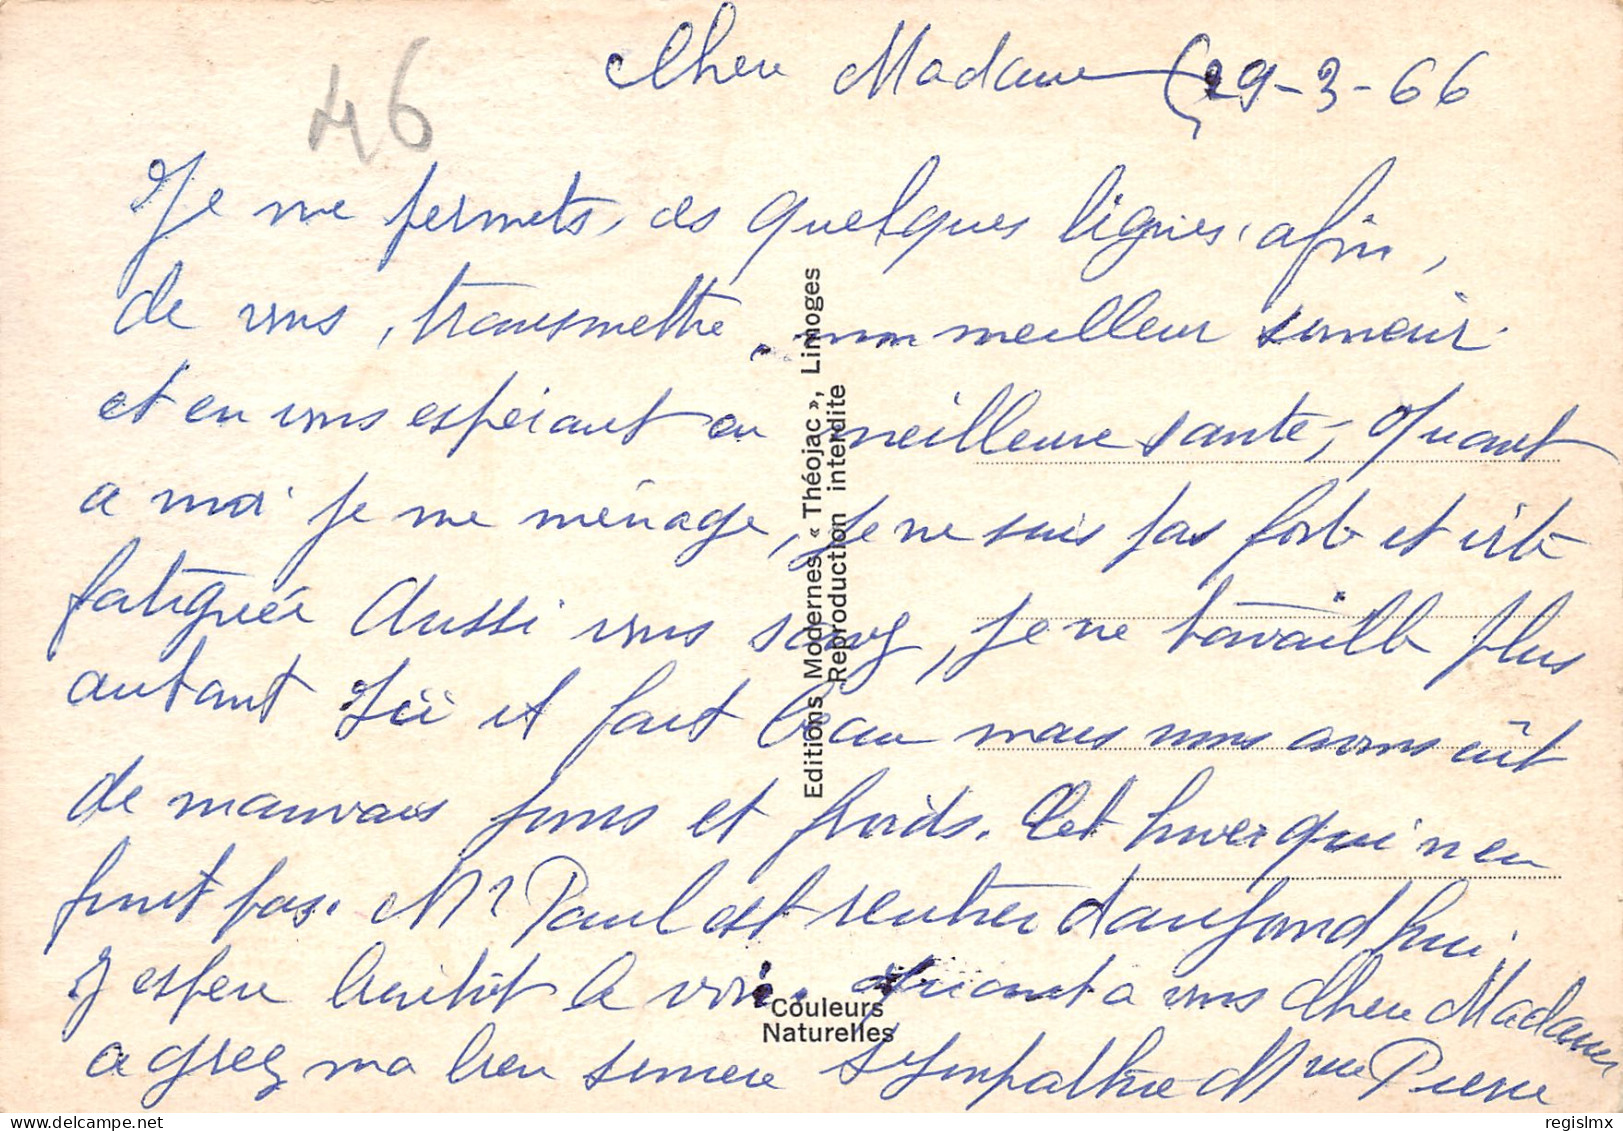 Chere Madame 29-3-66
46
Je me permets, ces quelques lignes, afin,
de vous, transmettre, mon meilleur souvenir.
et en vous espérant en meilleure sante, Quant
a moi je me ménage, je ne suis pas fort et vite
fatiguée Aussi vous savez, je ne travaille plus
autant Ici il fait beau mais nous avons eût
de mauvais jours et froids. Cet hiver qui n en
finit pas. Mr Paul est rentrer d aujourd hui,
J espere bientôt le voir. Quant a vous Chere Madame
agreez ma bien sincere Sympathie Mme Pierre
Editions Modernes « Théojac », Limoges
Reproduction interdite
Couleurs
Naturelles
regislmx